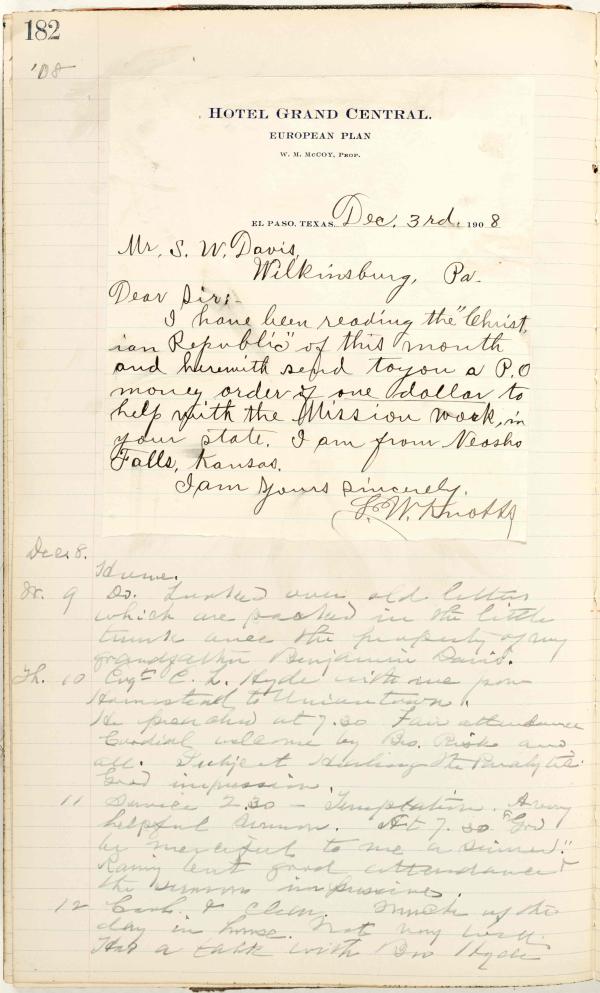 182
'08
HOTEL GRAND CENTRAL.
EUROPEAN PLAN
W. M. McCOY, PROP.
EL PASO, TEXAS, Dec. 3rd, 1908
Mr. S. W. Davis,
Wilkinsburg, Pa.
Dear Sir:-
I have been reading the "Christ,
ian Republic" of this month
and herewith send to you a P.O
money order of one dollar to
help with the Mission work, in
your state. I am from Neosho
Falls, Kansas.
I am Yours Sincerely,
S. W. Knotts
Dec. 8. Home.
W. 9 Do. Looked over old letters
which are packed in the little
trunk once the property of my
grandfather Benjamin Davis.
Th. 10 Evgt. C. L. Hyde with me from
Homestead to Uniontown.
He preached at 7.30 Fair attendance
Cordial welcome by Bro. Risk and
all. Subject Healing the Paralytic.
Good impression.
11 Service 2.30 - Temptation. A very
helpful sermon. At 7.30 "God
be merciful to me a sinner."
Rainy but good attendance &
the sermon impressive.
12 Cool & clear. Much of the
day in house. Not very well.
Had a talk with Bro Hyde